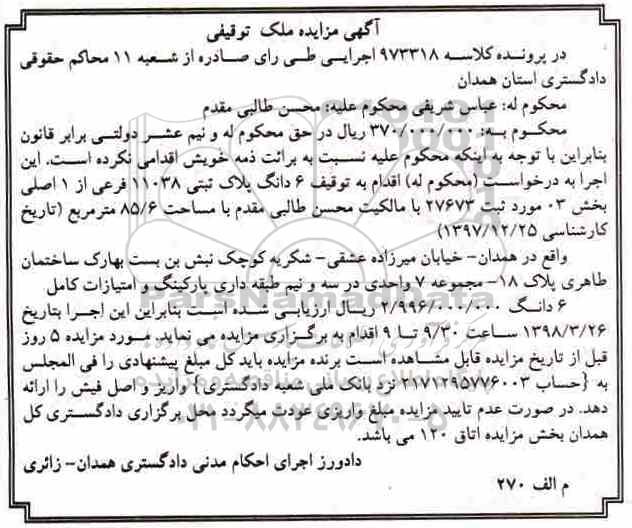 آگهی مزایده ملک توقیفی
در پرونده کلاسه ۹۷۳۳۱۸ اجرایی طی رای صادره از شعبه ۱۱ محاکم حقوقی
دادگستری استان همدان
محکوم له: عباس شریفی محکوم علیه: محسن طالبی مقدم
محکوم به: ۳۷۰/۰۰۰/۰۰۰ ریال در حق محکوم له و نیم عشر دولتی برابر قانون
بنابراین با توجه به اینکه محکوم علیه نسبت به برائت ذمه خویش اقدامی نکرده است. این
اجرا به درخواست (محکوم له) اقدام به توقیف ۶ دانگ پلاک ثبتی ۱۱۰۳۸ فرعی از ۱ اصلی
بخش ۰۳ مورد ثبت ۲۷۶۷۳ با مالکیت محسن طالبی مقدم با مساحت ۸۵/۶ مترمربع (تاریخ
کارشناسی ۱۳۹۷/۱۲/۲۵)
واقع در همدان- خیابان میرزاده عشقی- شکریه کوچک نبش بن بست بهارک ساختمان
طاهری پلاک ۱۸- مجموعه ۷ واحدی در سه و نیم طبقه داری پارکینگ و امتیازات کامل
۶ دانگ ۲/۹۹۶/۰۰۰/۰۰۰ ریال ارزیابی شده است بنابراین این اجرا بتاریخ
۱۳۹۸/۳/۲۶ ساعت ۹/۳۰ تا ۹ اقدام به برگزاری مزایده می نماید. مورد مزایده ۵ روز
قبل از تاریخ مزایده قابل مشاهده است برنده مزایده باید کل مبلغ پیشنهادی را فی المجلس
به {حساب ۲۱۷۱۲۹۵۷۷۶۰۰۳ نزد بانک ملی شعبه دادگستری} واریز و اصل فیش را ارائه
دهد. در صورت عدم تایید مزایده مبلغ واریزی عودت میگردد محل برگزاری دادگستری کل
همدان بخش مزایده اتاق ۱۲۰ می باشد.
دادورز اجرای احکام مدنی دادگستری همدان- زائری
م الف ۲۷۰
ParsNamadData